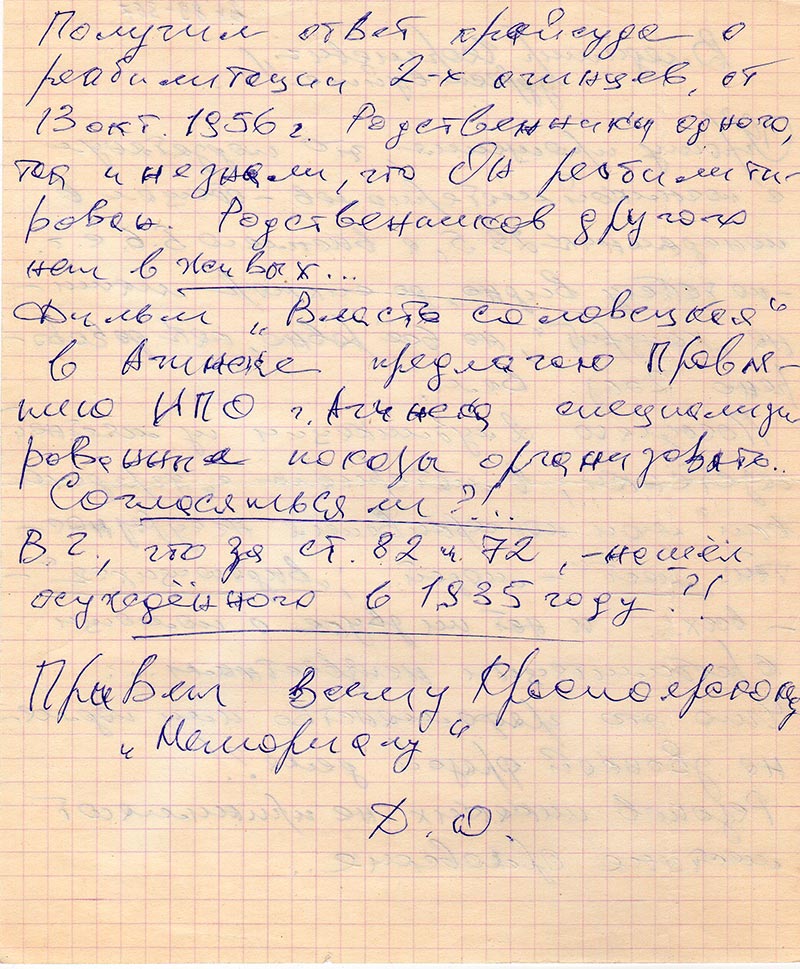 Получил ответ крайсуда о
реабилитации 2-х ачинцев, от
13 окт. 1956 г. Родственники одного,
так и незнали, что Он реабилити-
рован. Родственников другого
нет в живых...
Фильм „Власть соловецкая"
в Ачинске предлагаю Правле-
нию ИПО г. Ачинска специализи
рованные показы организовать..
Согласяться ли?!...
В.Г., что за ст. 82 ч. 72, -нашёл
осуждённого в 1935 году?!
Привет всему Красноярскому
„Мемориалу"